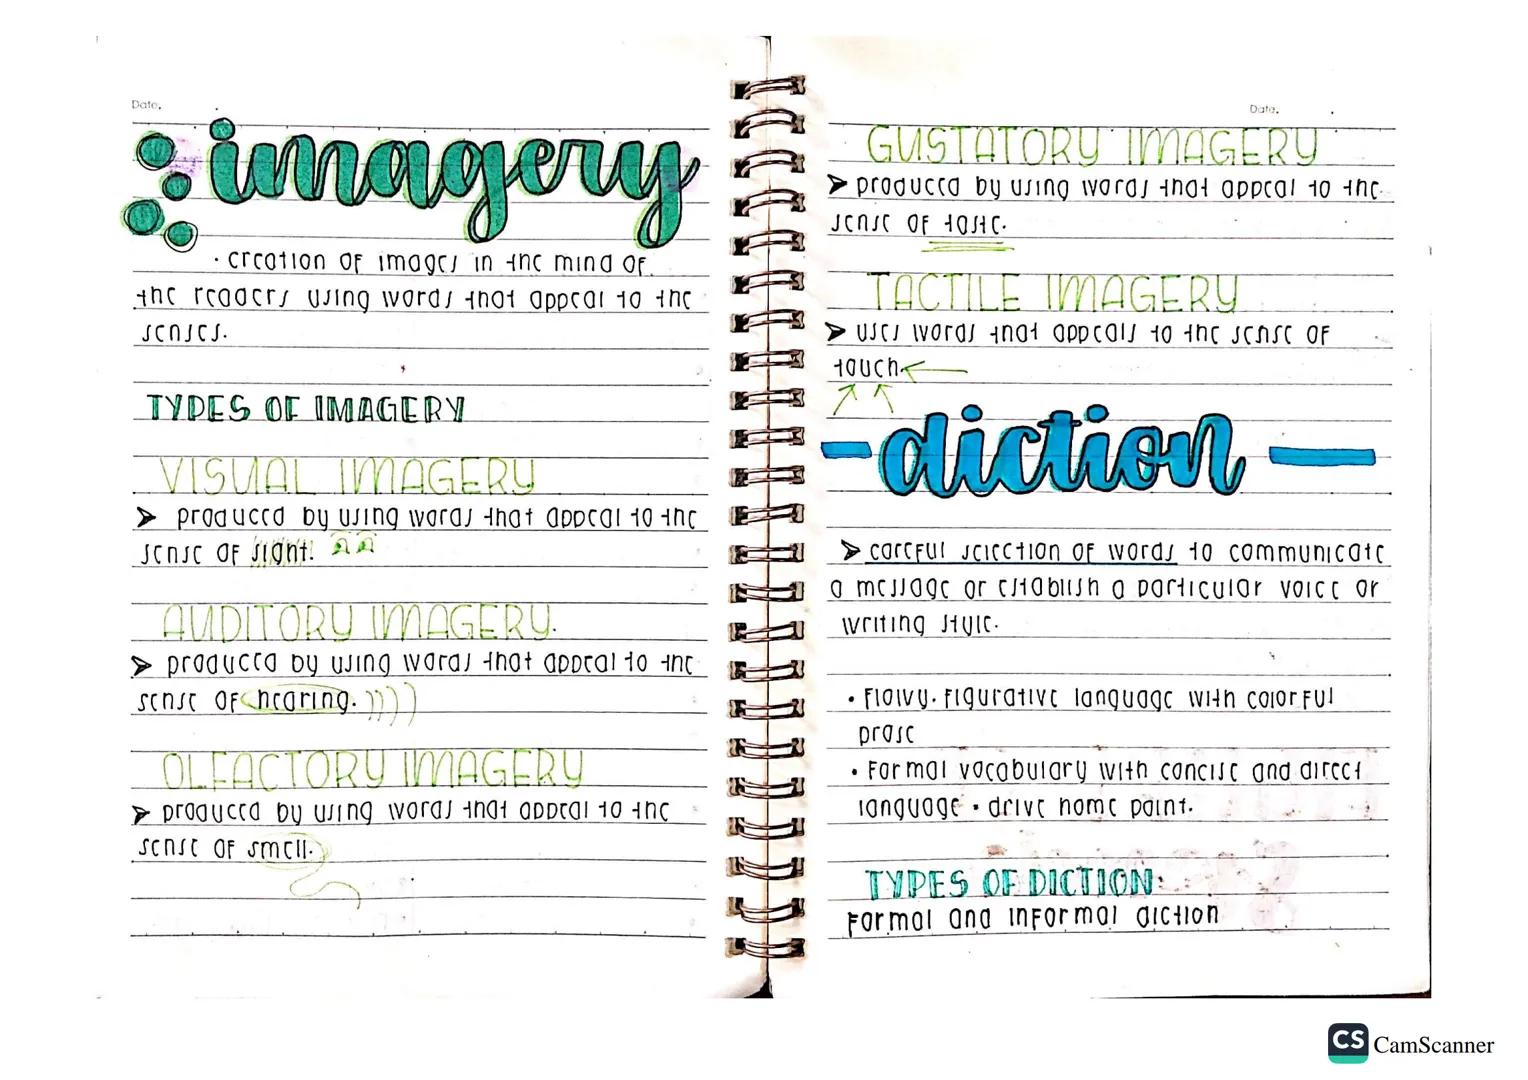 Date.
imagery
· creation of images in the mind of
the readers using words that appeal to the
senses.
TYPES OF IMAGERY
VISUAL IMAGERY
➤ produced by using words that appeal to the
sense of sight.
AUDITORY IMAGERY.
➤ produced by using words that appeal to the
sense of hearing.
OLFACTORY IMAGERY
➤ produced by using words that appeal to the
sense of smell.
Date.
GUSTATORY IMAGERY
➤ produced by using words that appeal to the
sense of taste.
TACTILE IMAGERY
➤ uses words that appeals to the sense of
touch.
diction
➤ careful selection of words to communicate
a message or establish a particular voice or
writing style.
• flowy. figurative language with colorful
prose
• formal vocabulary with concise and direct
language • drive home point.
TYPES OF DICTION:
formal and informal diction
CS CamScanner